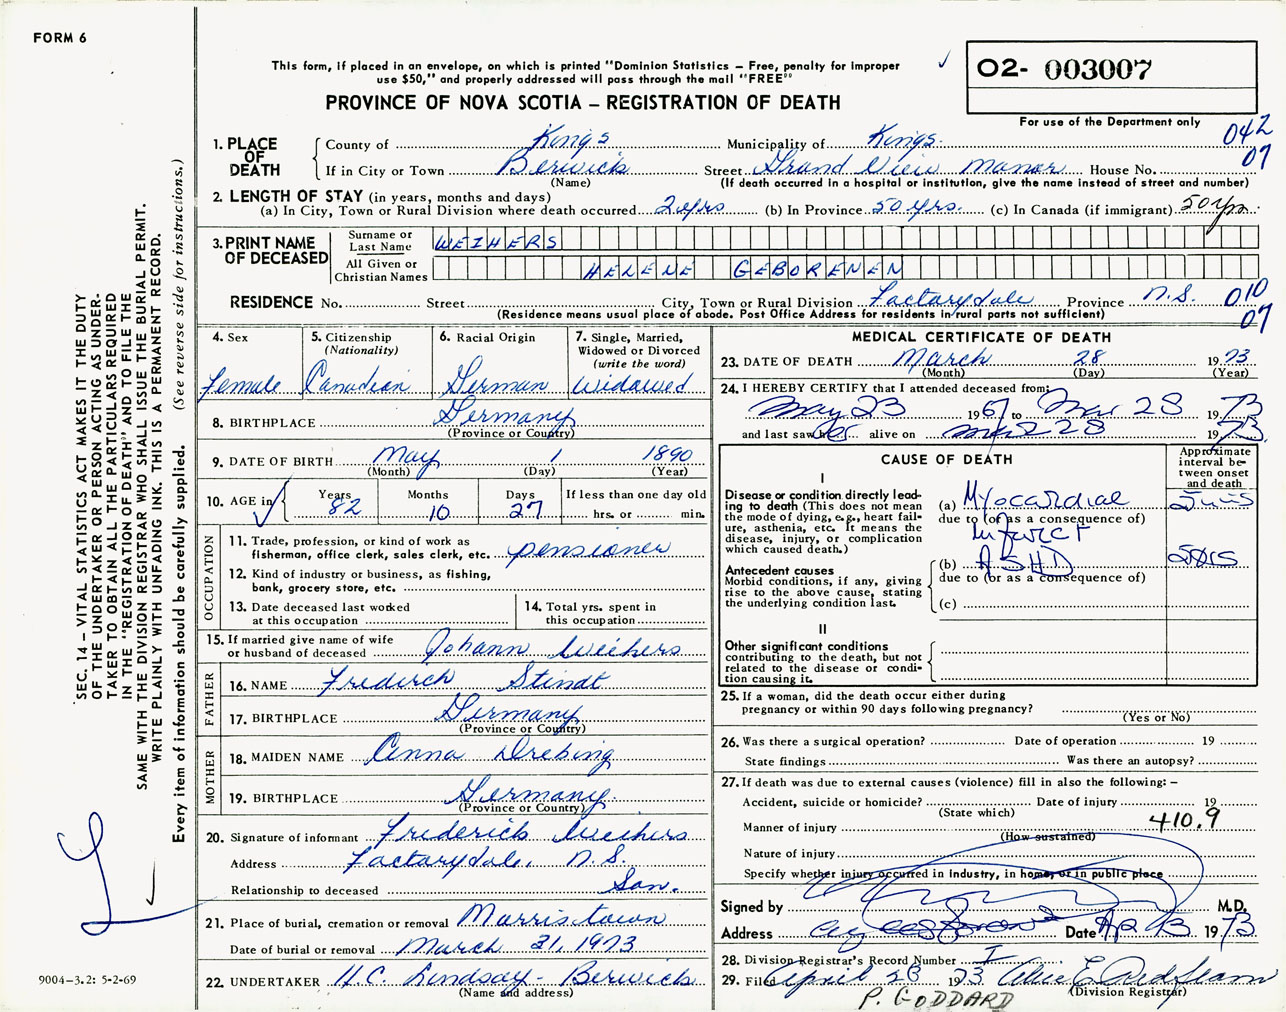 FORM 6
This form, if placed in an envelope, on which is printed "Dominion Statistics – Free, penalty for improper
use $50," and properly addressed will pass through the mail "FREE"
PROVINCE OF NOVA SCOTIA – REGISTRATION OF DEATH
02- 003007
For use of the Department only
042
07
1. PLACE OF DEATH
County of Kings Municipality of Kings.
If in City or Town Berwick Street Grand View Manor House No.
(Name) (If death occurred in a hospital or institution, give the name instead of street and number)
2. LENGTH OF STAY (in years, months and days)
(a) In City, Town or Rural Division where death occurred 2 yrs (b) In Province 50 yrs. (c) In Canada (if immigrant) 50 yrs.
3. PRINT NAME OF DECEASED
Surname or Last Name WEIHERS
All Given or Christian Names HELENE GEBORENEN
RESIDENCE No. Street City, Town or Rural Division Factorydale Province N.S. 010
(Residence means usual place of abode. Post Office Address for residents in rural parts not sufficient) 07
4. Sex Female
5. Citizenship (Nationality) Canadian
6. Racial Origin German
7. Single, Married, Widowed or Divorced (write the word) Widowed
8. BIRTHPLACE Germany
(Province or Country)
9. DATE OF BIRTH May 1 1890
(Month) (Day) (Year)
10. AGE in Years 82 Months 10 Days 27 If less than one day old hrs. or min.
OCCUPATION
11. Trade, profession, or kind of work as
fisherman, office clerk, sales clerk, etc. pensioner
12. Kind of industry or business, as fishing,
bank, grocery store, etc.
13. Date deceased last worked
at this occupation
14. Total yrs. spent in
this occupation
15. If married give name of wife
or husband of deceased Johann Weihers
FATHER
16. NAME Frederich Stindt
17. BIRTHPLACE Germany
(Province or Country)
MOTHER
18. MAIDEN NAME Anna Drebing
19. BIRTHPLACE Germany.
(Province or Country)
20. Signature of informant Frederick Weihers
Address Factorydale, N.S.
Relationship to deceased Son.
21. Place of burial, cremation or removal Morristown
Date of burial or removal March 31, 1973
22. UNDERTAKER H.C. Lindsay - Berwick
(Name and address)
MEDICAL CERTIFICATE OF DEATH
23. DATE OF DEATH March 28 1973
(Month) (Day) (Year)
24. I HEREBY CERTIFY that I attended deceased from:
May 23 1967 to Mar 28 1973
and last saw her alive on Mar 28 1973.
CAUSE OF DEATH
Approximate interval between onset and death
I
Disease or condition directly lead-
ing to death (This does not mean
the mode of dying, e.g., heart fail-
ure, asthenia, etc. It means the
disease, injury, or complication
which caused death.)
(a) Myocardial
due to (or as a consequence of)
Infarct
Antecedent causes
Morbid conditions, if any, giving
rise to the above cause, stating
the underlying condition last.
(b) ASHD
due to (or as a consequence of)
(c)
II
Other significant conditions
contributing to the death, but not
related to the disease or condi-
tion causing it.
25. If a woman, did the death occur either during
pregnancy or within 90 days following pregnancy?
(Yes or No)
26. Was there a surgical operation? Date of operation 19
State findings Was there an autopsy?
27. If death was due to external causes (violence) fill in also the following: –
Accident, suicide or homicide? Date of injury 19
(State which)
Manner of injury 410.9
(How sustained)
Nature of injury
Specify whether injury occurred in industry, in home, or in public place
Signed by M.D.
Address Date Ap 13 1973
28. Division Registrar's Record Number I
29. Filed April 23 1973
(Division Registrar)
P. GODDARD
SEC. 14 – VITAL STATISTICS ACT MAKES IT THE DUTY
OF THE UNDERTAKER OR PERSON ACTING AS UNDER-
TAKER TO OBTAIN ALL THE PARTICULARS REQUIRED
IN THE "REGISTRATION OF DEATH" AND TO FILE THE
SAME WITH THE DIVISION REGISTRAR WHO SHALL ISSUE THE BURIAL PERMIT.
WRITE PLAINLY WITH UNFADING INK. THIS IS A PERMANENT RECORD.
Every item of information should be carefully supplied. (See reverse side for instructions.)
9004-3.2: 5-2-69